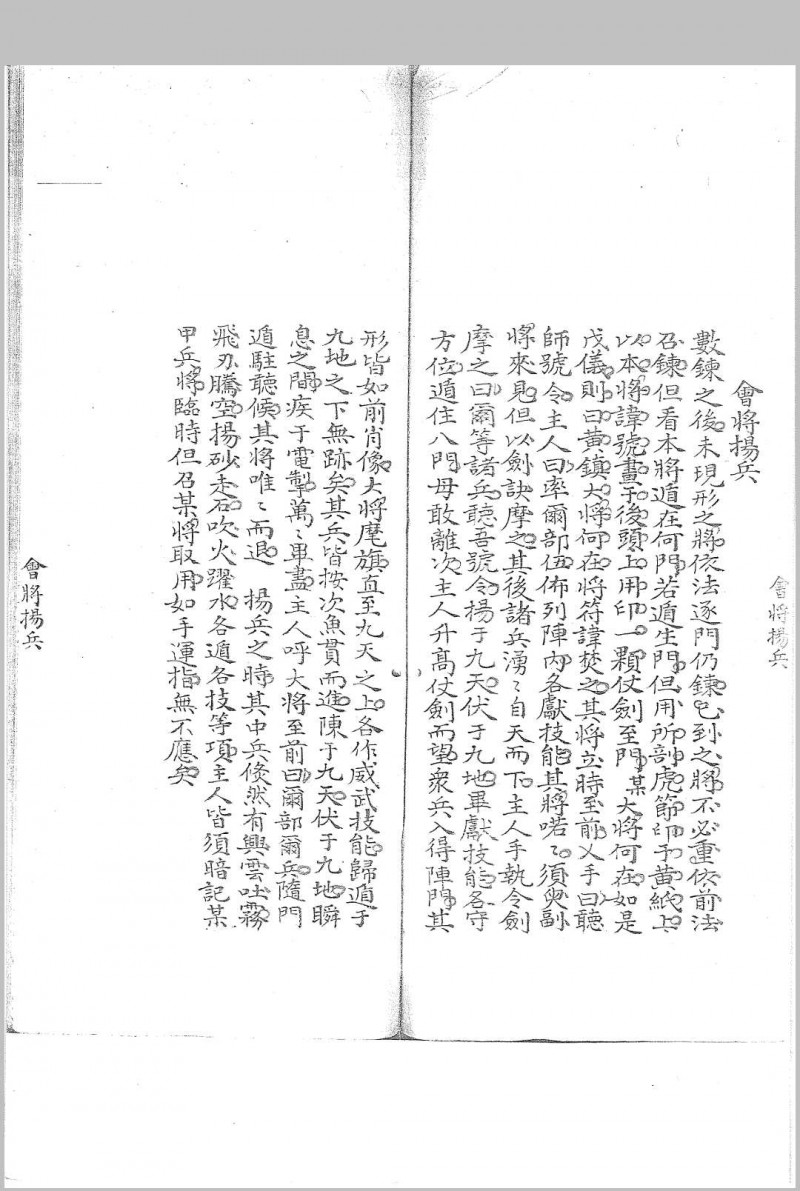 會將揚兵
會將揚兵
數鍊之後未現形之將依法逐門仍鍊已到之將不必重依前法
召鍊但看本將遁在何門若遁生門但用所剖虎節印于黃紙上
以本將諱號畫于後頭上用印一顆仗劍至門某大將何在如是
戊儀則曰黃鎮大將何在將符諱焚之其將立時至前乂手曰聽
師號令主人曰率爾部伍佈列陣內各獻技能其將喏〻須臾副
將來見但以劍訣摩之其後諸兵湧〻自天而下主人手執令劍
摩之曰爾等諸兵聽吾號令揚于九天伏于九地畢獻技能各守
方位遁住八門毋敢離次主人升高仗劍而望眾兵入得陣門其
形皆如前肖像大將麾旗直至九天之上各作威武技能歸遁于
九地之下無跡矣其兵皆按次魚貫而進陳于九天伏于九地瞬
息之間疾于電掣萬〻畢盡主人呼大將至前曰爾部爾兵隨門
遁駐聽候其將唯〻而退 揚兵之時其中兵倏然有興雲吐霧
飛刃騰空揚砂走石吹火躍水各遁各技等項主人皆須暗記某
甲兵將臨時但召某將取用如手運指無不應矣
會將揚兵